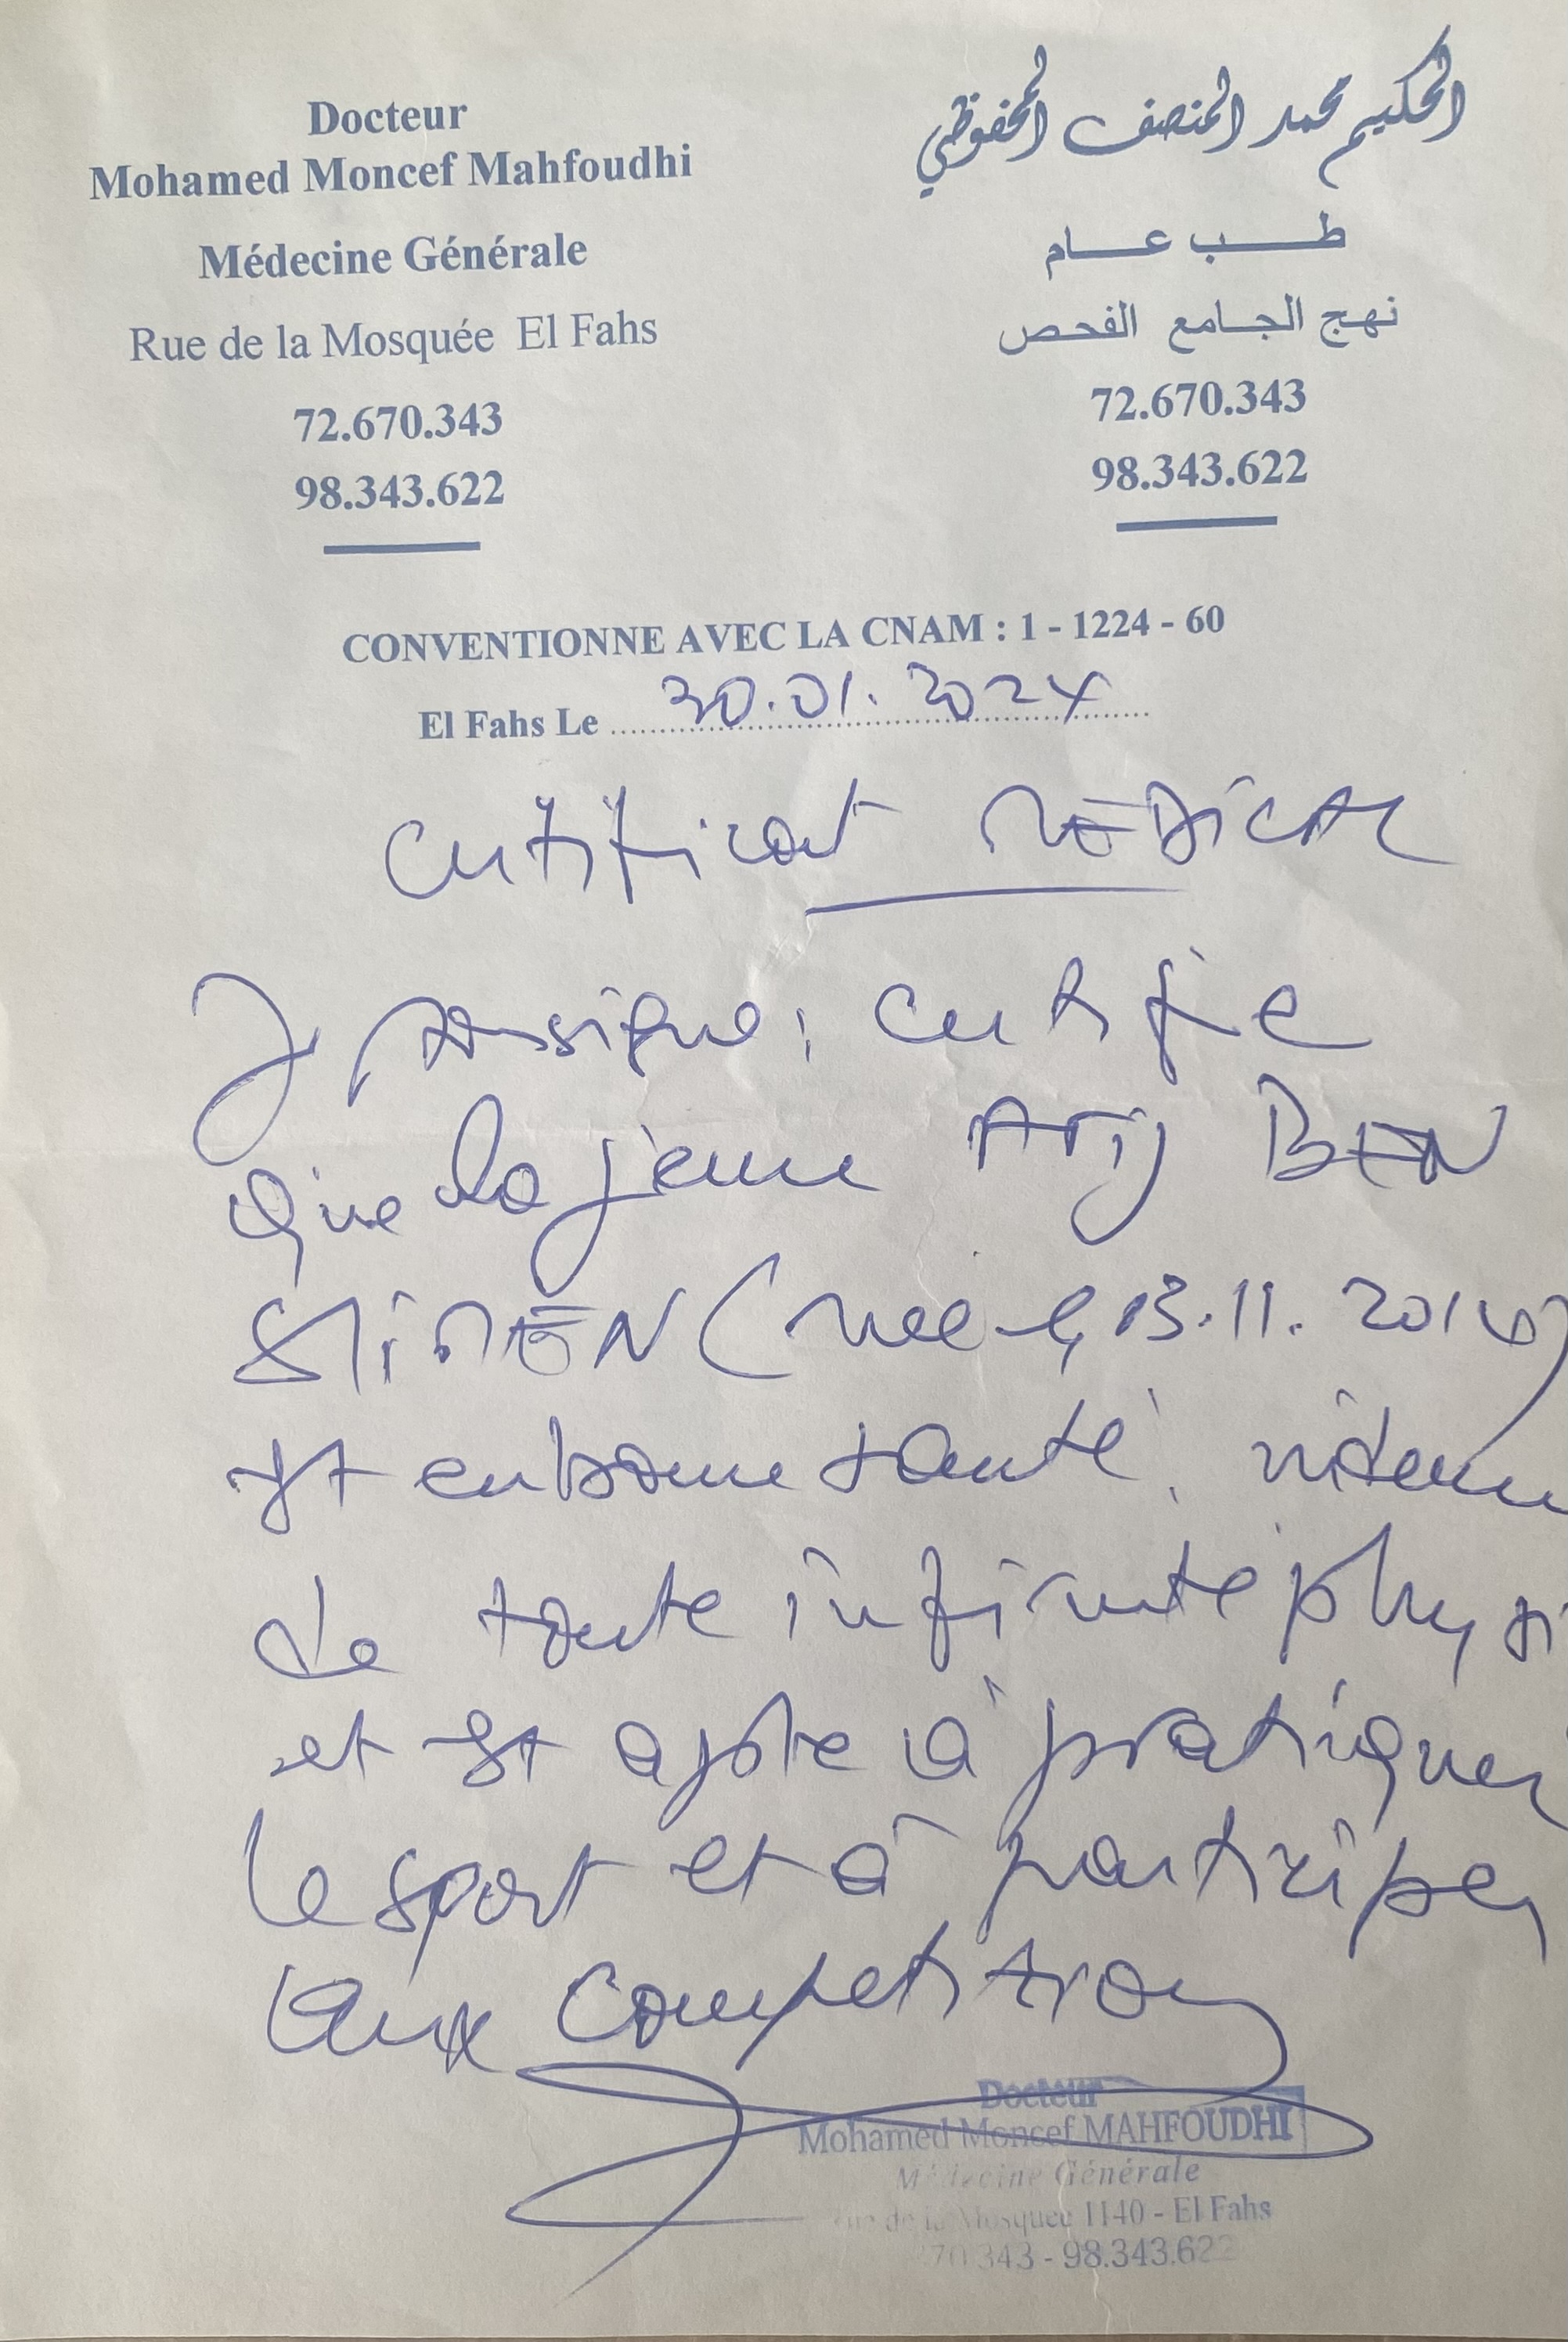 Docteur
Mohamed Moncef Mahfoudhi
Médecine Générale
Rue de la Mosquée El Fahs
72.670.343
98.343.622
الحكيم محمد المنصف المحفوظي
طب عام
نهج الجامع الفحص
72.670.343
98.343.622
CONVENTIONNE AVEC LA CNAM : 1 - 1224 - 60
El Fahs Le 30.01.2024
Certificat MEDICAL
Je soussigné, certifie
que la jeune Arij BEN
SLIMEN (née le 13.11.2014)
est en bonne santé, indemne
de toute infirmité physi
et est apte à pratiquer
le sport et à participer
aux competitions
Docteur
Mohamed Moncef MAHFOUDHI
Médecine Générale
de la Mosquee 1140 - El Fahs
70.343 - 98.343.622